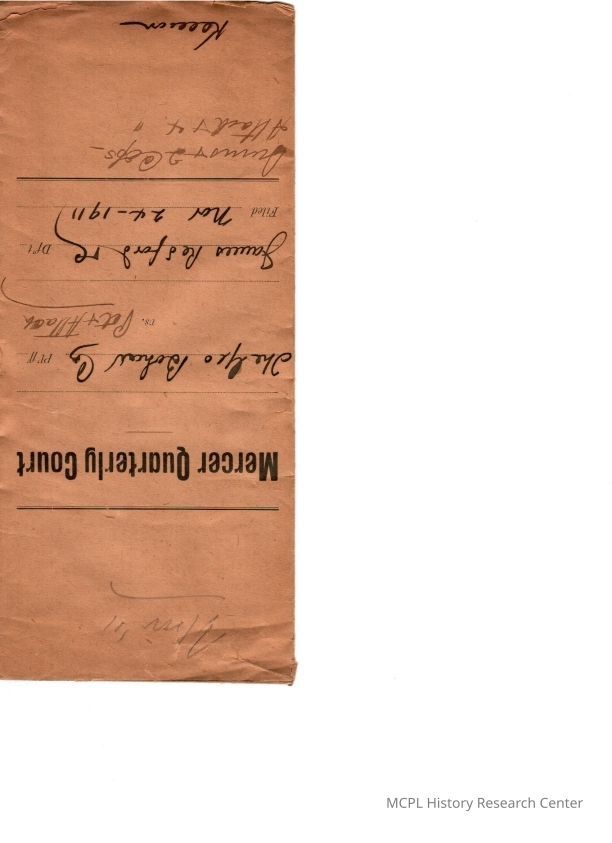 Nov '11
Mercer Quarterly Court
The Geo Bohon Co Pl'ff
vs. Pet & Attach
James Redford &c Df't
Filed Nov 24-1911
Summs & 2 Cops
Attach & 4 "
Keenon
MCPL History Research Center